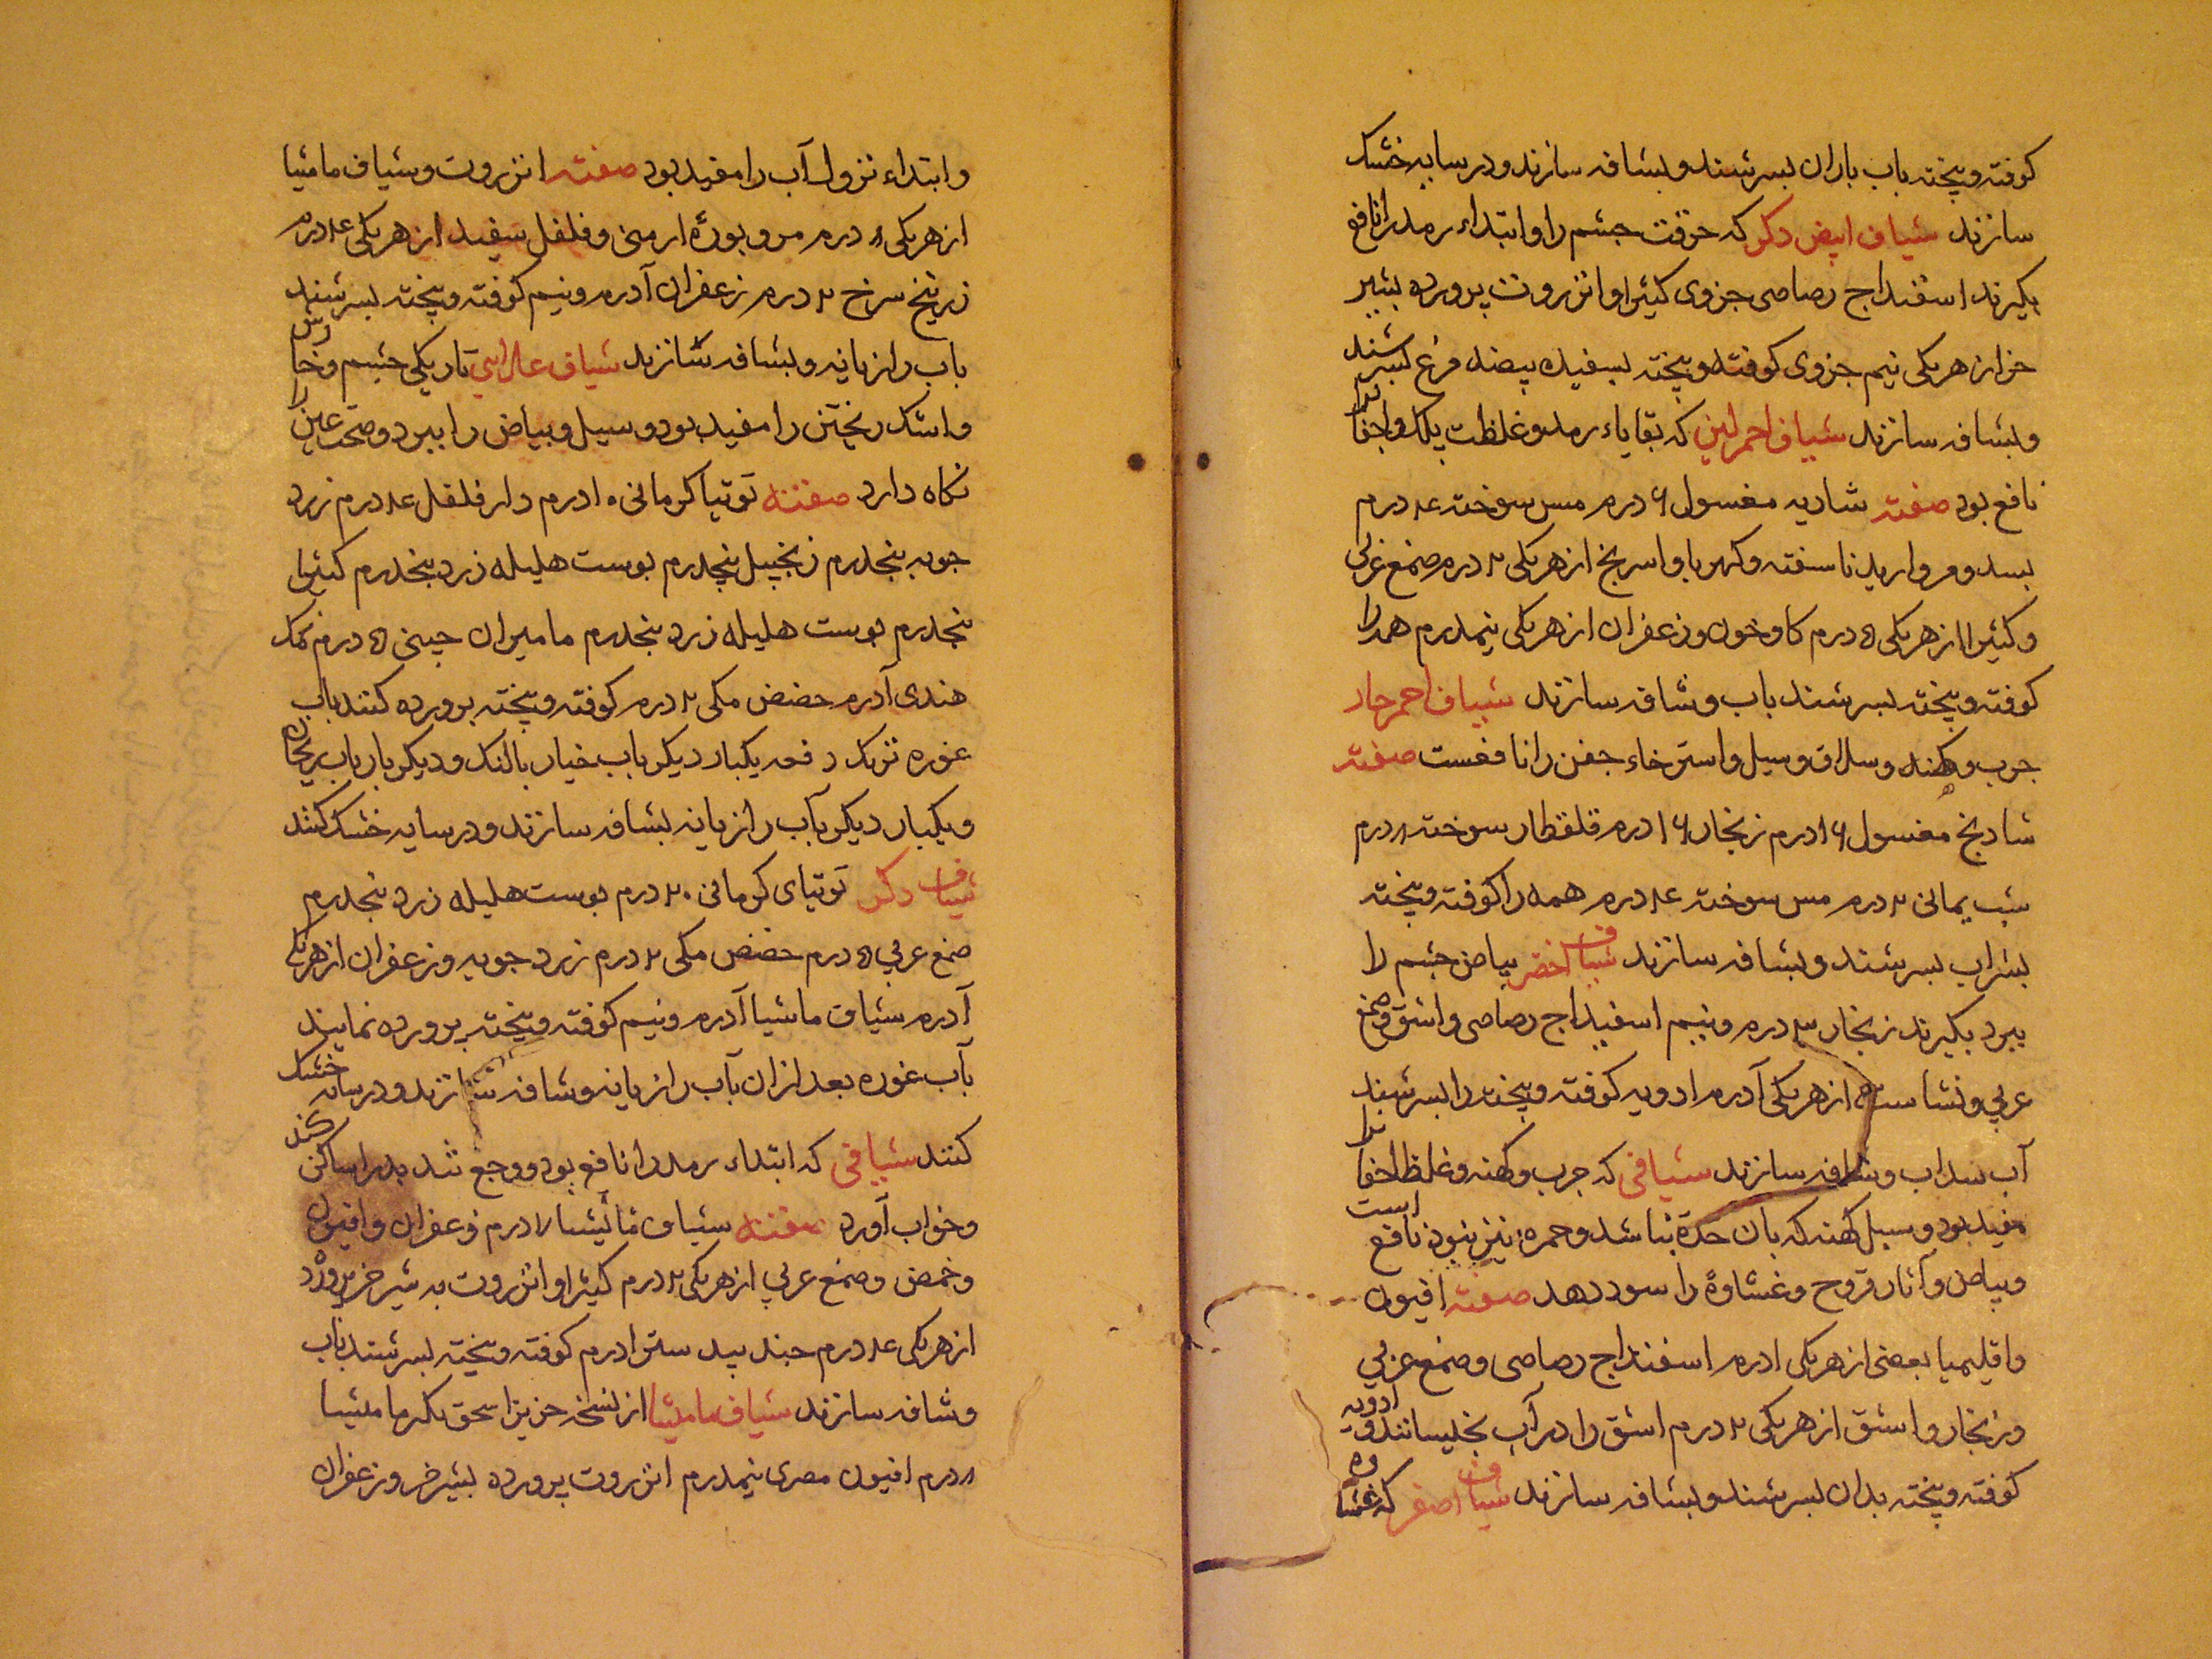 كوفته و پیخته باب باران بسرشند و بشافه سازند و در سایه خشک
سازند شیاف ابیض دكر كه حرقت چشم را و ابتداء رمد را نافع
بكیرند اسفیداج رصاصی جزوی كتیرا و انزروت پرورده بشیر
خر از هر یكی نیم جزوی كوفته و پیخته بسفیده بیضه مرغ بسرشند
و بشافه سازند شیاف احمر لین كه بقایاء رمد و غلظت پلک و اجفانرا
نافع بود صفته شادنه مغسول ۶ درم مس سوخته ۴ درم
بسد و مروارید ناسفته و كهربا و اسرنج از هر یكی ۲ درم صمغ عربی
و كتیرا از هر یكی ۵ درم كاوخون و زعفران از هر یكی نیمدرم همه را
كوفته و پیخته بسرشند باب و شافه سازند شیاف احمر حار
جرب و كهنه و سلاق و سبل و استرخاء جفن را نافعست صفته
شادنج مغسول ۱۶ درم زنجار ۱۶ درم قلقطار سوخته ۸ درم
شب یمانی ۲ درم مس سوخته ۴ درم همه را كوفته و پیخته
بشراب بسرشند و بشافه سازند شیاف اخضر بیاض چشم را
ببرد بكیرند زنجار ۳ درم و نیم اسفیداج رصاصی و اشق و صمغ
عربی و نشاسته از هر یكی ۲ درم ادویه كوفته و پیخته را بسرشند
آب سداب و شافه سازند شیافی كه جرب و كهنه و غلظ اجفانرا
مفید بود و سبل كهنه كه بان حدة نباشد و حمره نیز نبود نافع است
و بیاض و آثار قروح و غشاوة را سود دهد صفته افیون
و اقلیمیا بعضی از هر یكی ۱ درم اسفیداج رصاصی و صمغ عربی
و زنجار و اشق از هر یكی ۲ درم اشق را در آب بخیسانند و ادویه
كوفته و پیخته بدان بسرشند و بشافه سازند شیاف اصفر كه غشاوه
و ابتداء نزول آب را مفید بود صفته انزروت و شیاف مامیثا
از هر یكی ۸ درم مر و بورۀ ارمنی و فلفل سفید از هر یكی ۴ درم
زرنیخ سرخ ۲ درم زعفران ۲ درم و نیم كوفته و پیخته بسرشند
باب رازیانه و بشافه سازند شیاف تاریكی چشم و خارش
و اشک ریختن را مفید بود و سبل و بیاض را ببرد و صحت عین را
نكاه دارد صفته توتیا كرمانی ۱۰ درم دار فلفل ۴ درم زرد
جوبه پنجدرم زنجبیل پنجدرم پوست هلیله زرد پنجدرم كتیرا
پنجدرم پوست هلیله زرد پنجدرم مامیران چینی ۵ درم نمک
هندی ۲ درم حضض مكی ۲ درم كوفته و پیخته پرورده كنند باب
غوره یكبار دیكر باب خیار بالنک و دیكر بار باب
و یكبار دیكر بآب رازیانه بشافه سازند و در سایه خشک كنند
شیاف دكر توتیای كرمانی ۲۰ درم پوست هلیله زرد پنجدرم
صمغ عربی ۵ درم حضض مكی ۲ درم زرد جوبه و زعفران از هر یكی
۲ درم شیاف مامیثا ۲ درم و نیم كوفته و پیخته پرورده نمایند
بآب غوره بعد از ان بآب رازیانه و شافه سازند و در سایه خشک
كنند شیافی كه ابتداء رمد را نافع بود و وجع شدید را ساكن كند
و خواب آورد صفته شیاف مامیثا ۸ درم زعفران و افیون
و حضض و صمغ عربی از هر یكی ۲ درم كتیرا و انزروت به شیر خر پرورده
از هر یكی ۴ درم جندبیدستر ۱ درم كوفته و پیخته بسرشند باب
و شافه سازند شیاف مامیثا از نسخه اسحق بكر مامیثا
۸ درم افیون مصری نیمدرم انزروت پرورده بشیر خر و زعفران